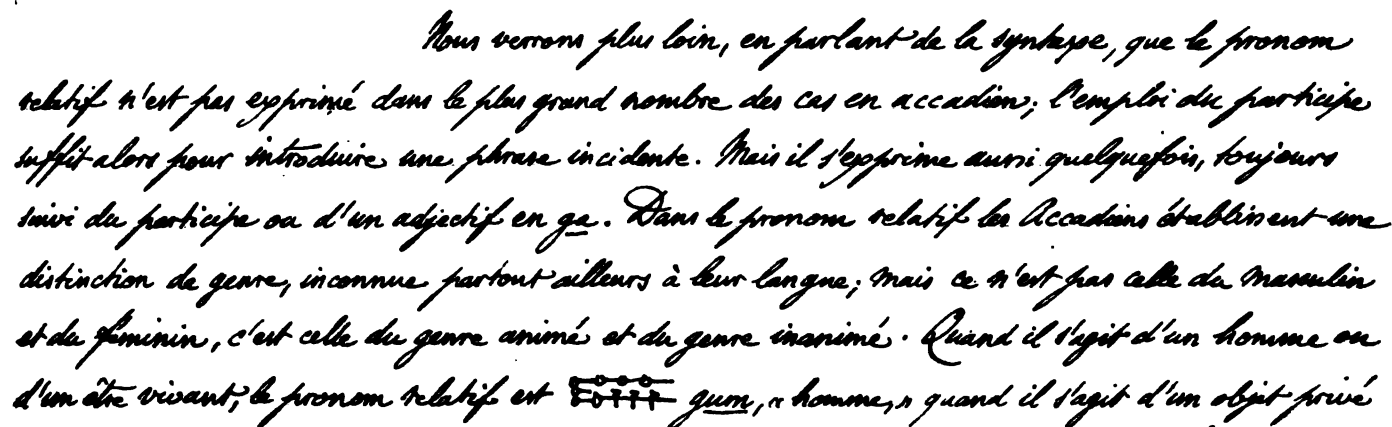 Nous verrons plus loin, en parlant de la syntaxe, que le pronom
relatif n'est pas exprimé dans le plus grand nombre des cas en accadien; l'emploi du participe
suffit alors pour introduire une phrase incidente. Mais il s'exprime aussi quelquefois, toujours
suivi du participe ou d'un adjectif en ga. Dans le pronom relatif les Accadiens établissent une
distinction de genre, inconnue partout ailleurs à leur langue; mais ce n'est pas celle du masculin
et du féminin, c'est celle du genre animé et du genre inanimé. Quand il s'agit d'un homme ou
d'un être vivant, le pronom relatif est gum, « homme, » quand il s'agit d'un objet privé